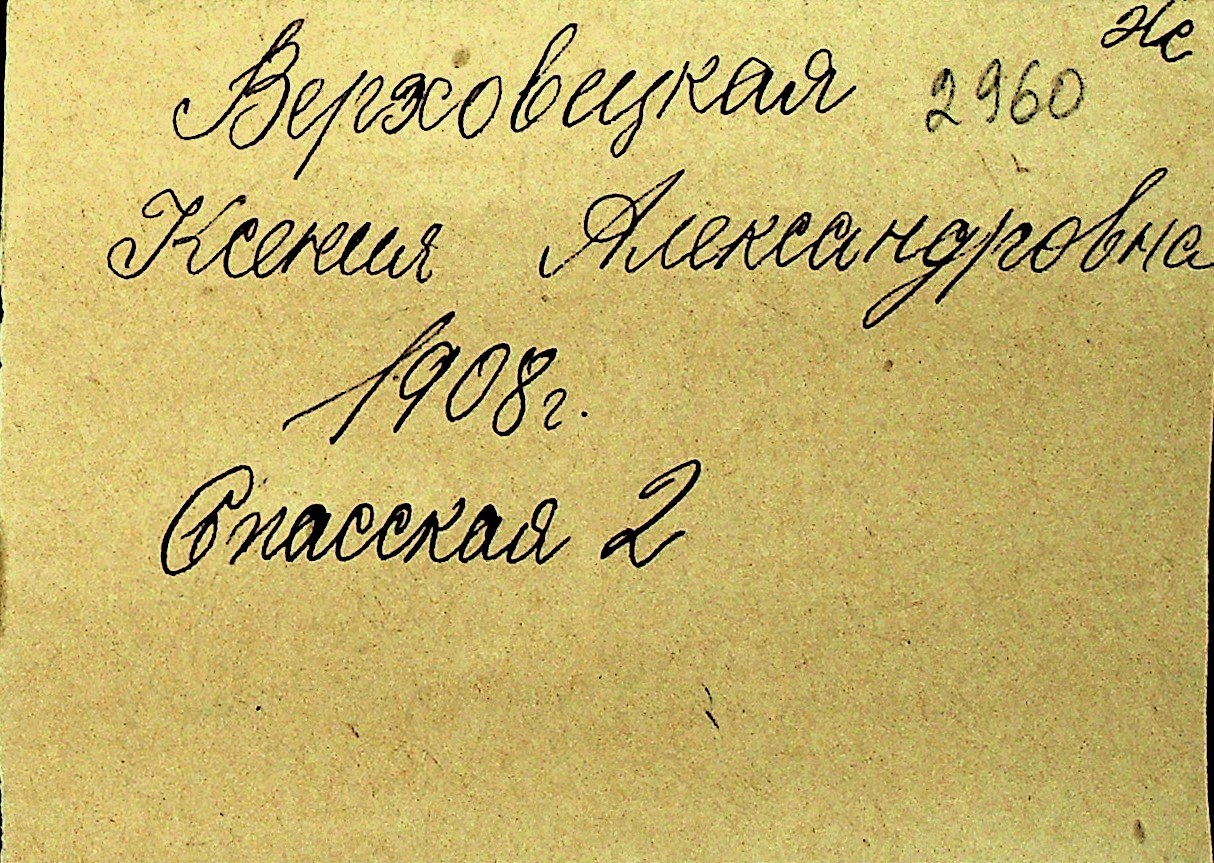 Верховецкая 2960 Же
Ксения Александровна
1908 г.
Спасская 2